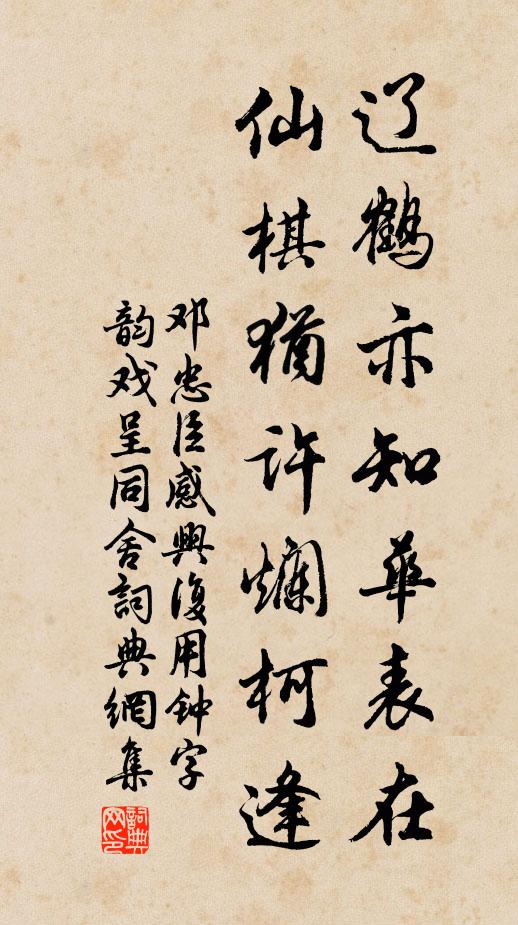 辽鹤亦知华表在
仙棋犹許爛柯逢
邓忠臣感興復用钟字
韵戏呈同舍詞典網集
詞典网印